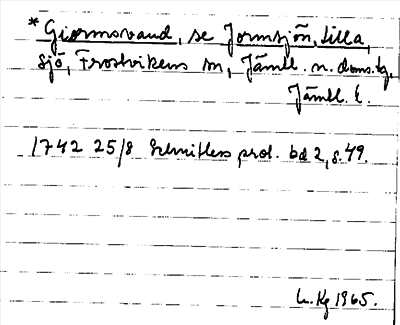 * Giormsvand, se Jormsjön, lilla,
sjö, Frostvikens sn, Jämtl. n. doms.,
Jämtl. l.
1742 25/8 Schnitlers prot. bd 2, s. 49.
1965.